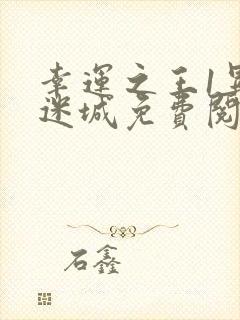 幸運之王1異
迷城免費閱
石鑫